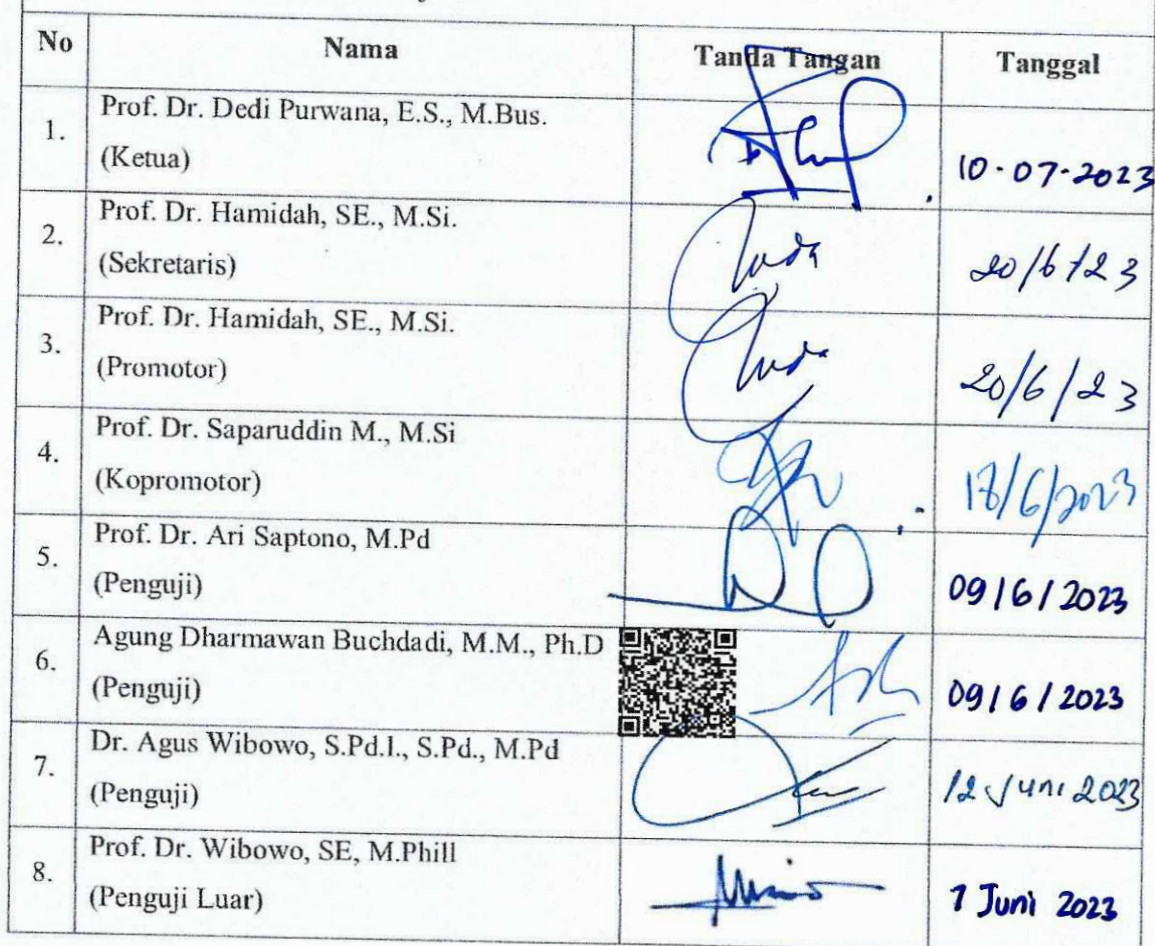 No Nama Tanda Tangan Tanggal
1. Prof. Dr. Dedi Purwana, E.S., M.Bus.
(Ketua) 10-07-2023
2. Prof. Dr. Hamidah, SE., M.Si.
(Sekretaris) 20/6/23
3. Prof. Dr. Hamidah, SE., M.Si.
(Promotor) 20/6/23
4. Prof. Dr. Saparuddin M., M.Si
(Kopromotor) /6/2023
5. Prof. Dr. Ari Saptono, M.Pd
(Penguji) 09/6/2023
6. Agung Dharmawan Buchdadi, M.M., Ph.D
(Penguji) 09/6/2023
7. Dr. Agus Wibowo, S.Pd.I., S.Pd., M.Pd
(Penguji) 12 Juni 2023
8. Prof. Dr. Wibowo, SE, M.Phill
(Penguji Luar) 7 Juni 2023